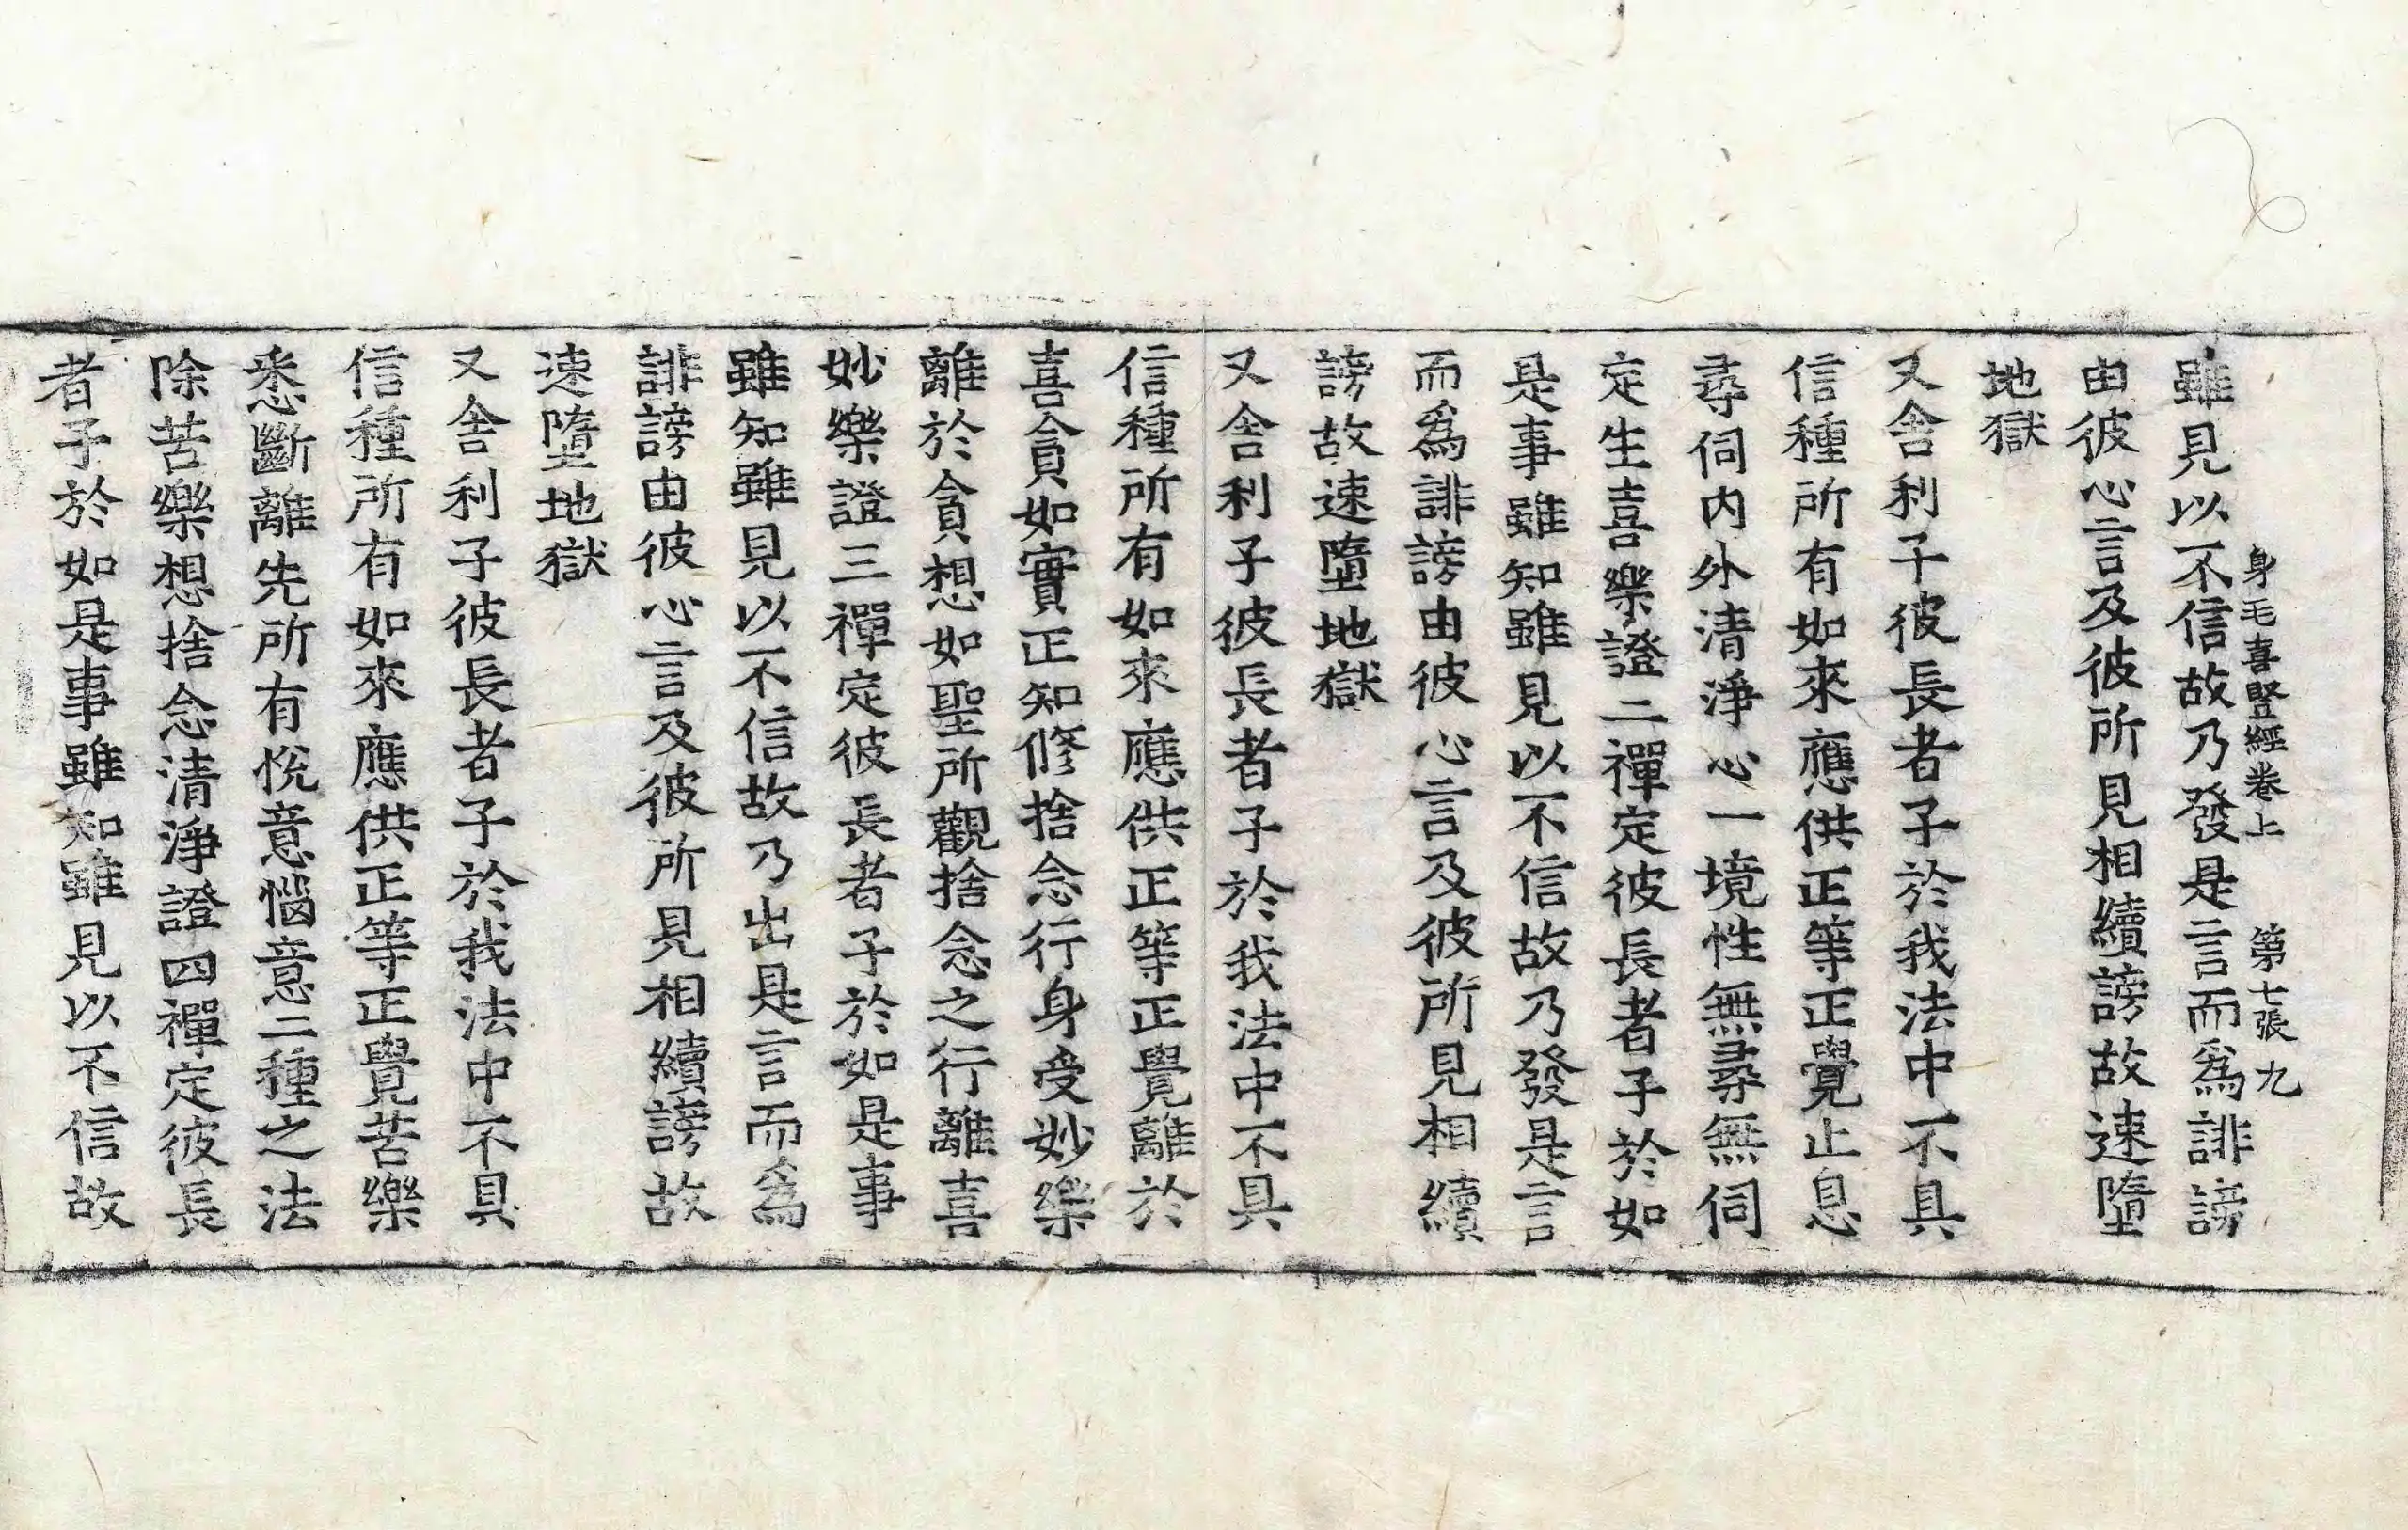 身毛喜豎經卷上　第七張　九
雖見以不信故乃發是言而爲誹謗
由彼心言及彼所見相續謗故速墮
地獄
又舍利子彼長者子於我法中不具
信種所有如來應供正等正覺止息
尋伺內外清淨心一境性無尋無伺
定生喜樂證二禪定彼長者子於如
是事雖知雖見以不信故乃發是言
而爲誹謗由彼心言及彼所見相續
謗故速墮地獄
又舍利子彼長者子於我法中不具
信種所有如來應供正等正覺離於
喜貪如實正知修捨念行身受妙樂
離於貪想如聖所觀捨念之行離喜
妙樂證三禪定彼長者子於如是事
雖知雖見以不信故乃出是言而爲
誹謗由彼心言及彼所見相續謗故
速墮地獄
又舍利子彼長者子於我法中不具
信種所有如來應供正等正覺苦樂
悉斷離先所有悅意惱意二種之法
除苦樂想捨念清淨證四禪定彼長
者子於如是事雖知雖見以不信故